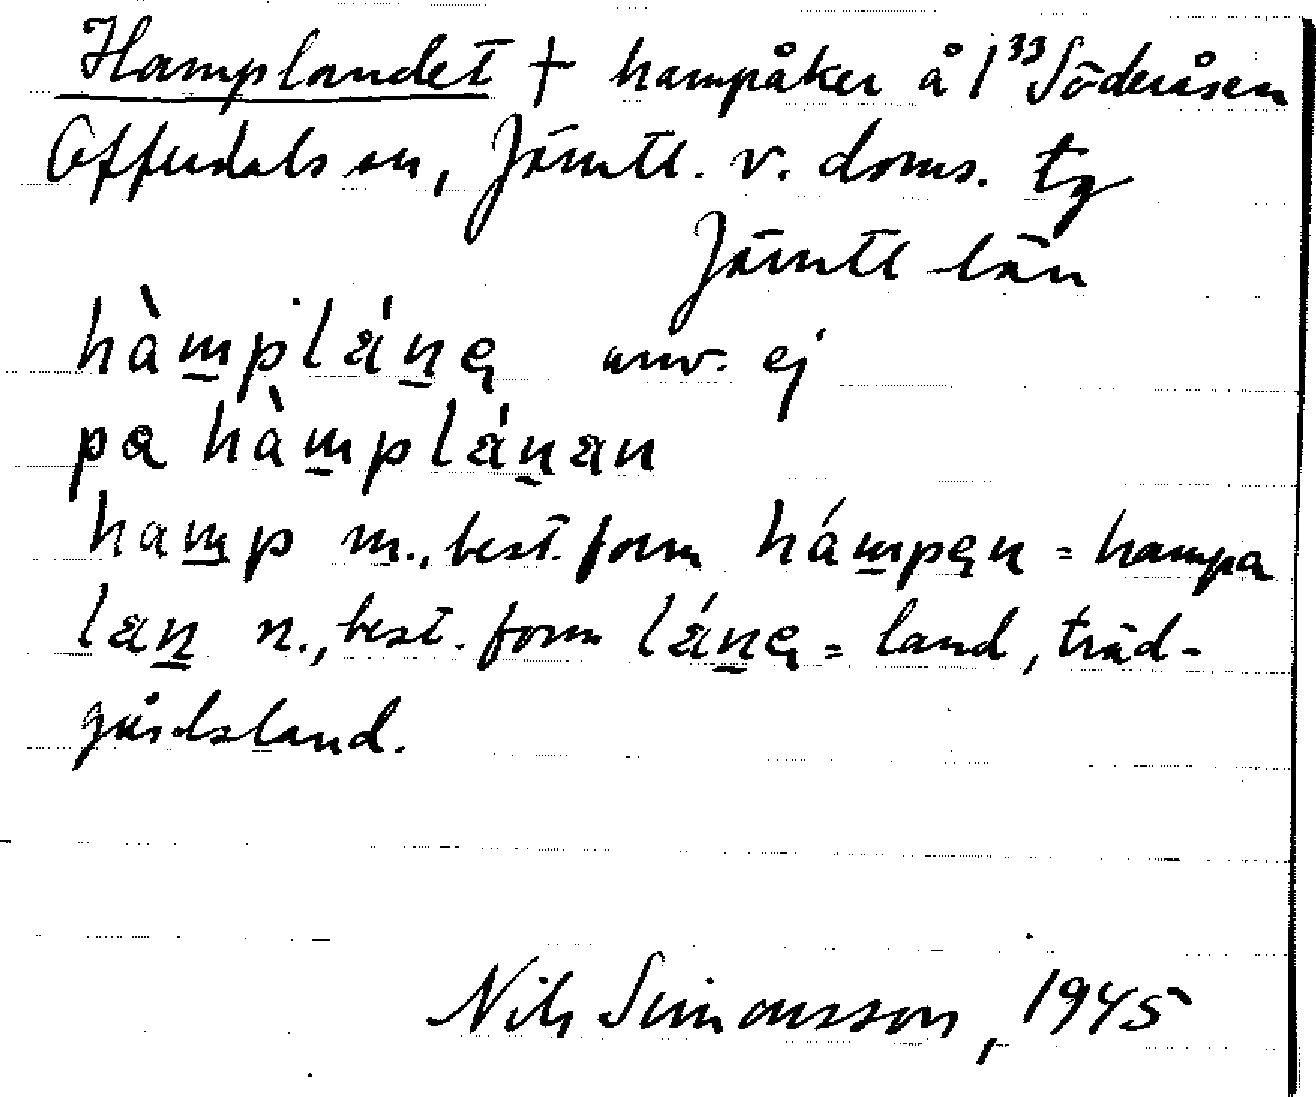 Hamplandet † hampåker å 1³³ Söderåsen
Offerdals sn, Jämtl. v. doms. tg
Jämtl län
hàm̲plán̲ę anv. ej
pa hàm̲plán̲an
ham̲p m., best. form hám̲pęn = hampa
lan̲ n., best. form lán̲ę = land, träd-
gårdsland.
Nils Simonsson, 1945